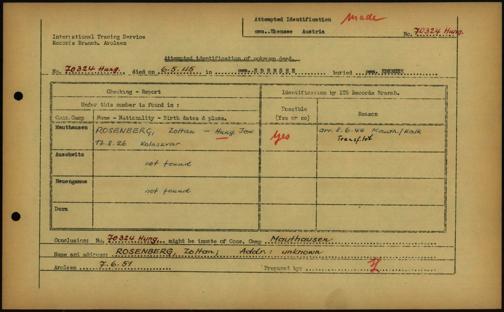 Attempted Identification made
International Tracing Service
Records Branch. Arolsen
cem. Ebensee Austria No. 70324 Hung.
Attempted identification of unknown dead.
No. 70324 Hung. died on 6-5-45 in cem. EBENSEE buried cem. EBENSEE
Checking - Report Identification by ITS Records Branch.
Under this number is found in:
Conc. Camp Name - Nationality - Birth dates & place. Possible (Yes or no) Reason
Mauthausen ROSENBERG, Zoltan - Hung. Jew Yes arr. 8.6.44 Mauth/
17.8.26 Kolozsvar Transp. list
Auschwitz not found
Neuengamme not found
Dora
Conclusion: No. 70324 Hung. might be inmate of Conc. Camp Mauthausen
Name and address: ROSENBERG, Zoltan; Addr: unknown
Arolsen 7.6.51 Prepared by: